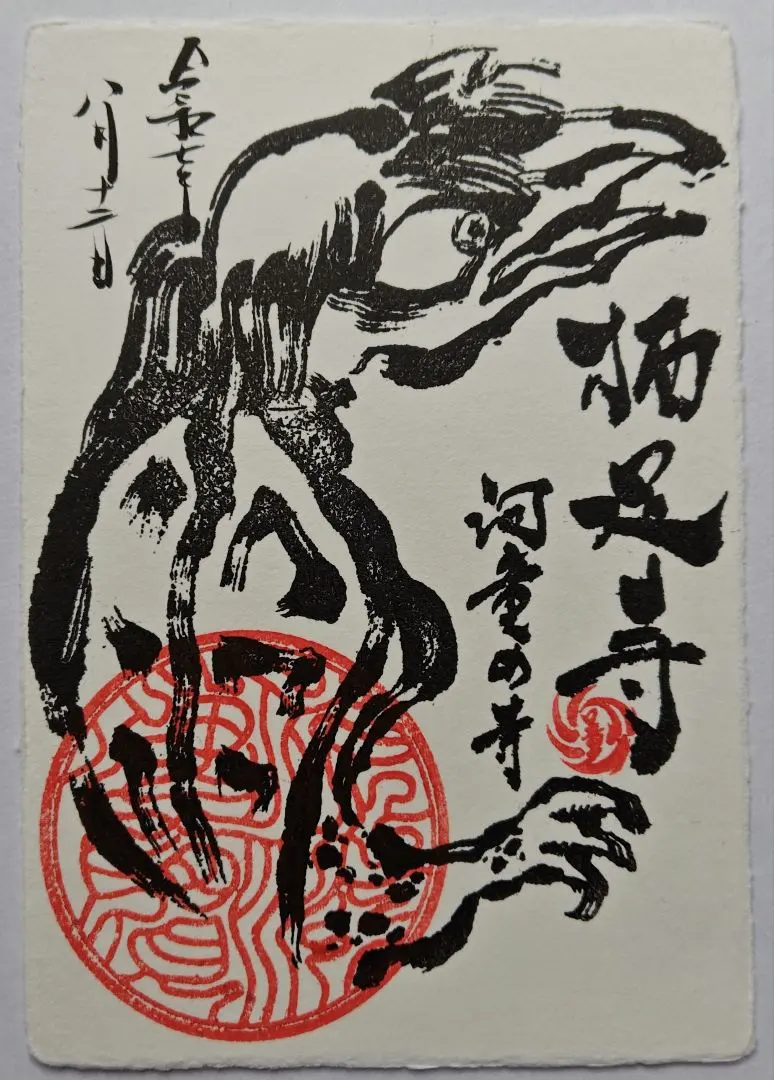 栖足寺
河童の寺
令和七年
八月十二日